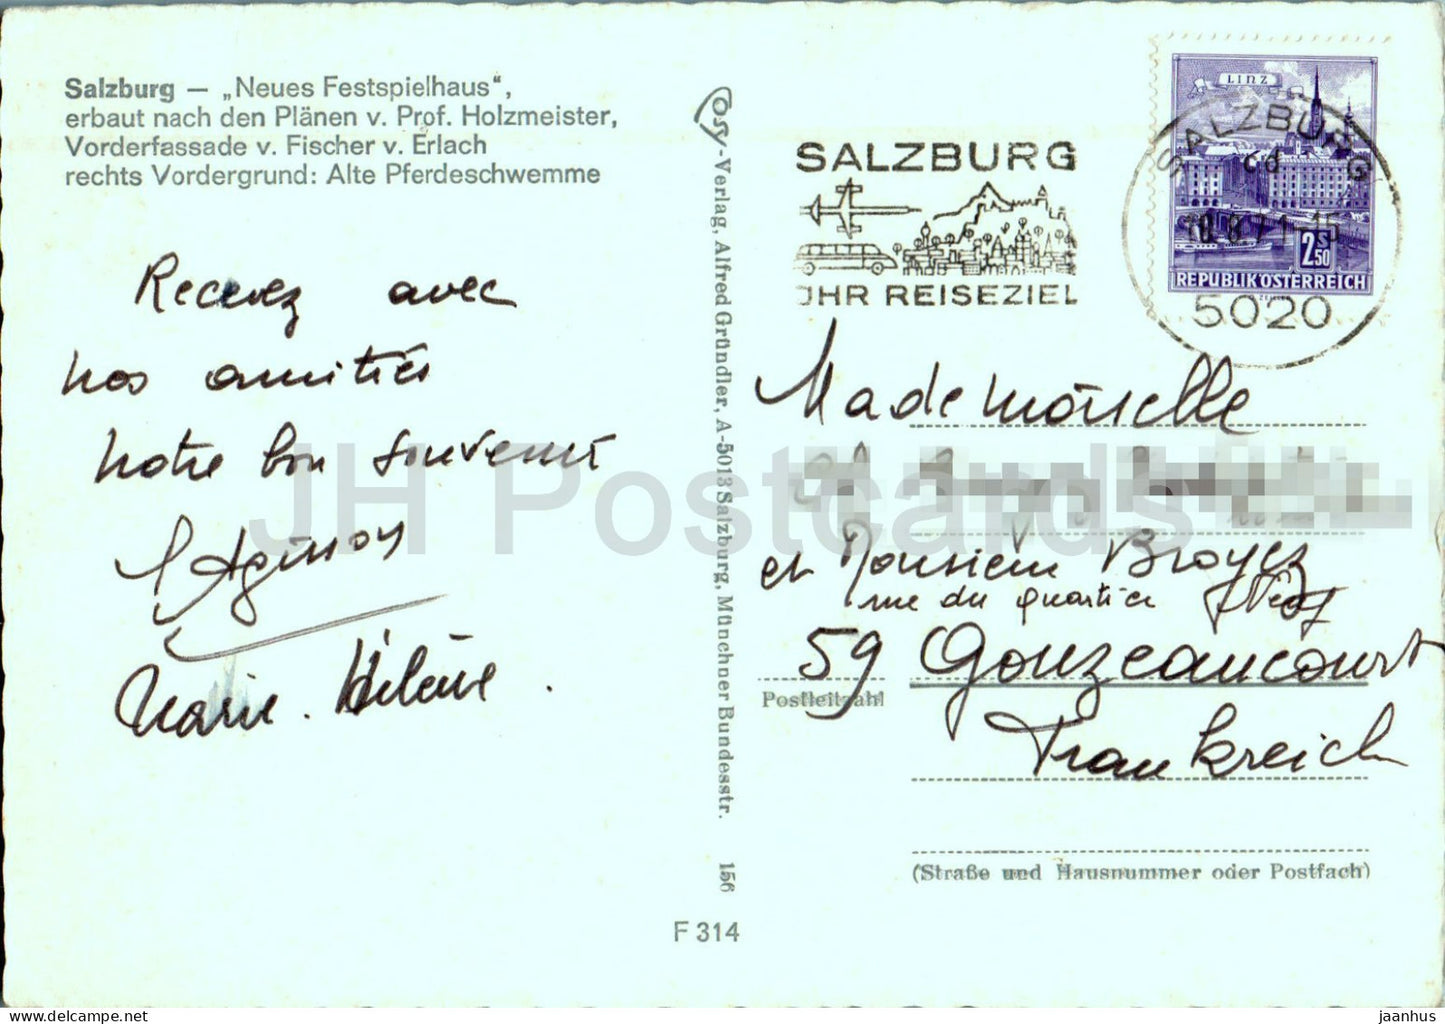 Salzburg — „Neues Festspielhaus",
erbaut nach den Plänen v. Prof. Holzmeister,
Vorderfassade v. Fischer v. Erlach
rechts Vordergrund: Alte Pferdeschwemme
Recevez avec
nos amitiés
notre bon souvenir
Marie. Hélène.
Osy-Verlag, Alfred Gründler, A-5013 Salzburg, Münchner Bundesstr.
156
F 314
SALZBURG
JHR REISEZIEL
LINZ
2S50
REPUBLIK ÖSTERREICH
SALZBURG
5020
Mademoiselle
et Monsieur Broyez
rue du quartier
59 Gouzeaucourt
Postleitzahl
Frankreich
(Straße und Hausnummer oder Postfach)
JH Postcards
jaanhus © HipPostcard.com